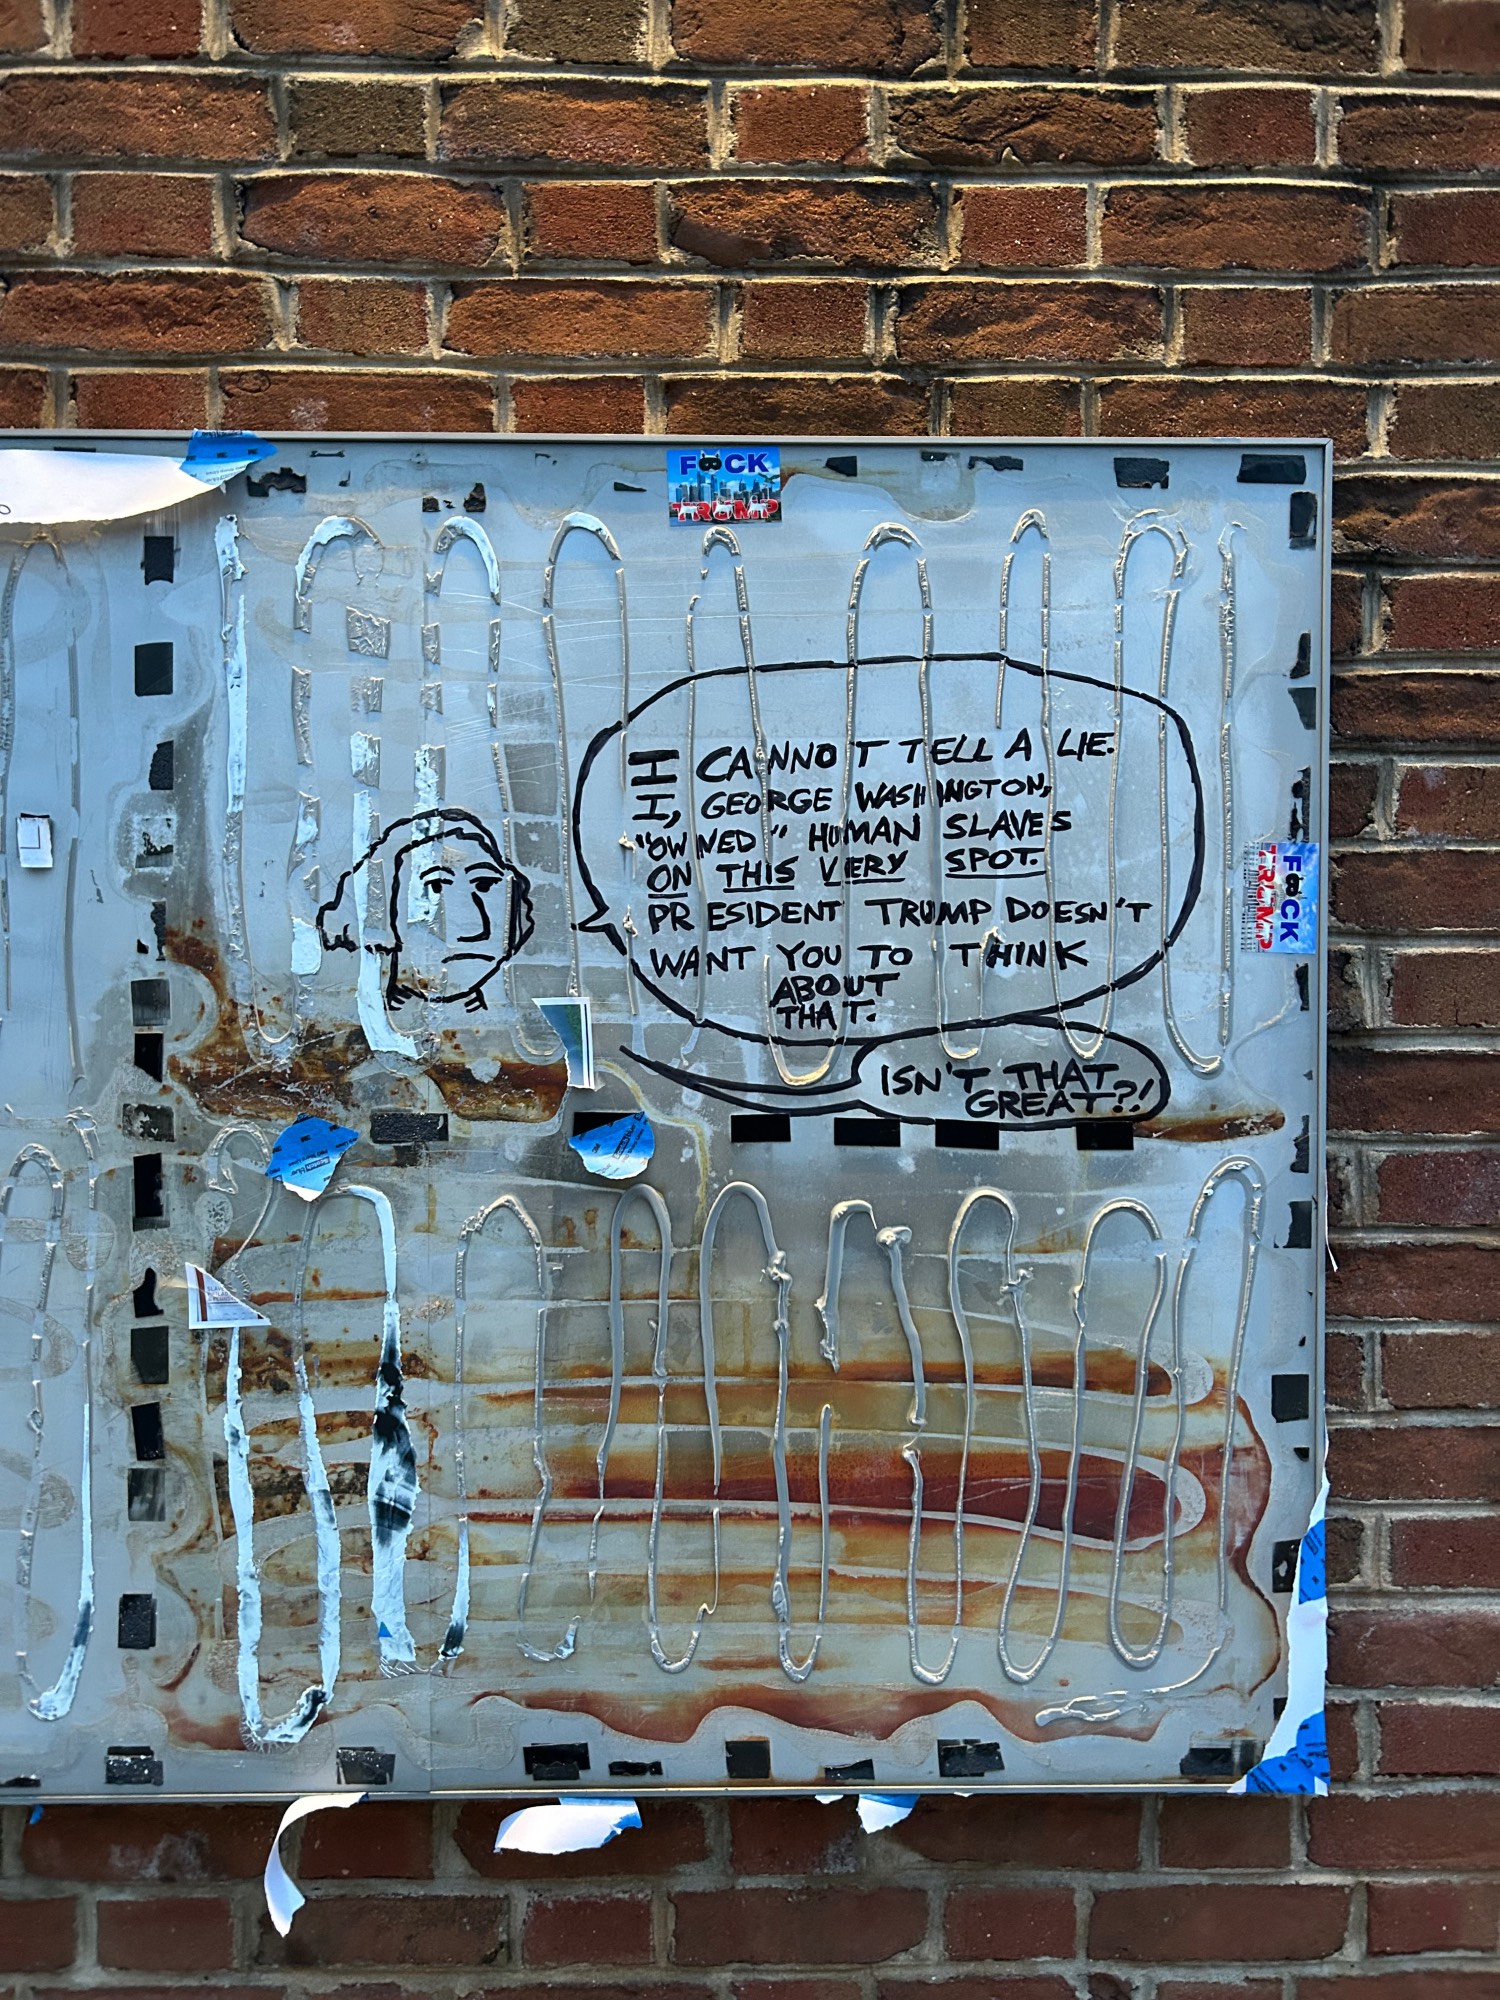 F CK
TRUMP
I CANNOT TELL A LIE.
I, GEORGE WASHINGTON,
"OWNED" HUMAN SLAVES
ON THIS VERY SPOT.
PRESIDENT TRUMP DOESN'T
WANT YOU TO THINK
ABOUT
THAT.
ISN'T THAT
GREAT?!
F CK
TRUMP